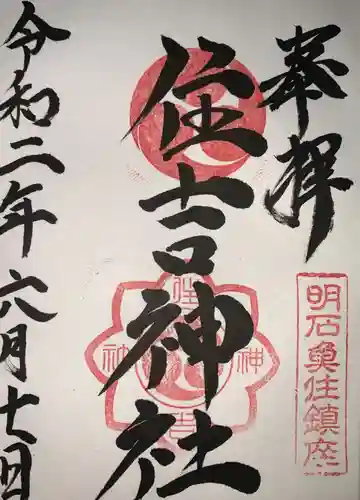 奉拝
明石奥住鎮座
住吉神社
住
吉
神
社
令和二年六月七日